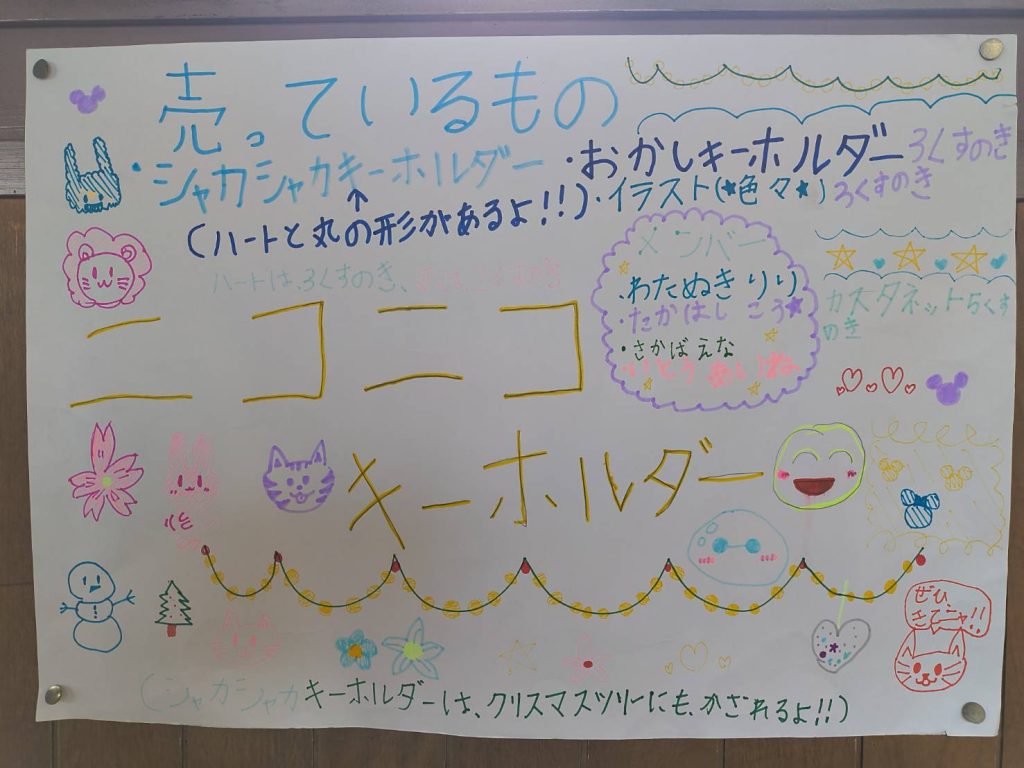 売っているもの
・シャカシャカキーホルダー
・おかしキーホルダー ろくすのき
(ハートと丸の形があるよ!!)
・イラスト(★色々★) ろくすのき
ハートは、ろくすのき、
メンバー
・わたぬき りり
・たかはし こう★
・さかば えな
いとう
カスタネット らくす
のき
ニコニコ
キーホルダー
ぜひ
きてニャ!!
(シャカシャカキーホルダーは、クリスマスツリーにも、かざれるよ!!)